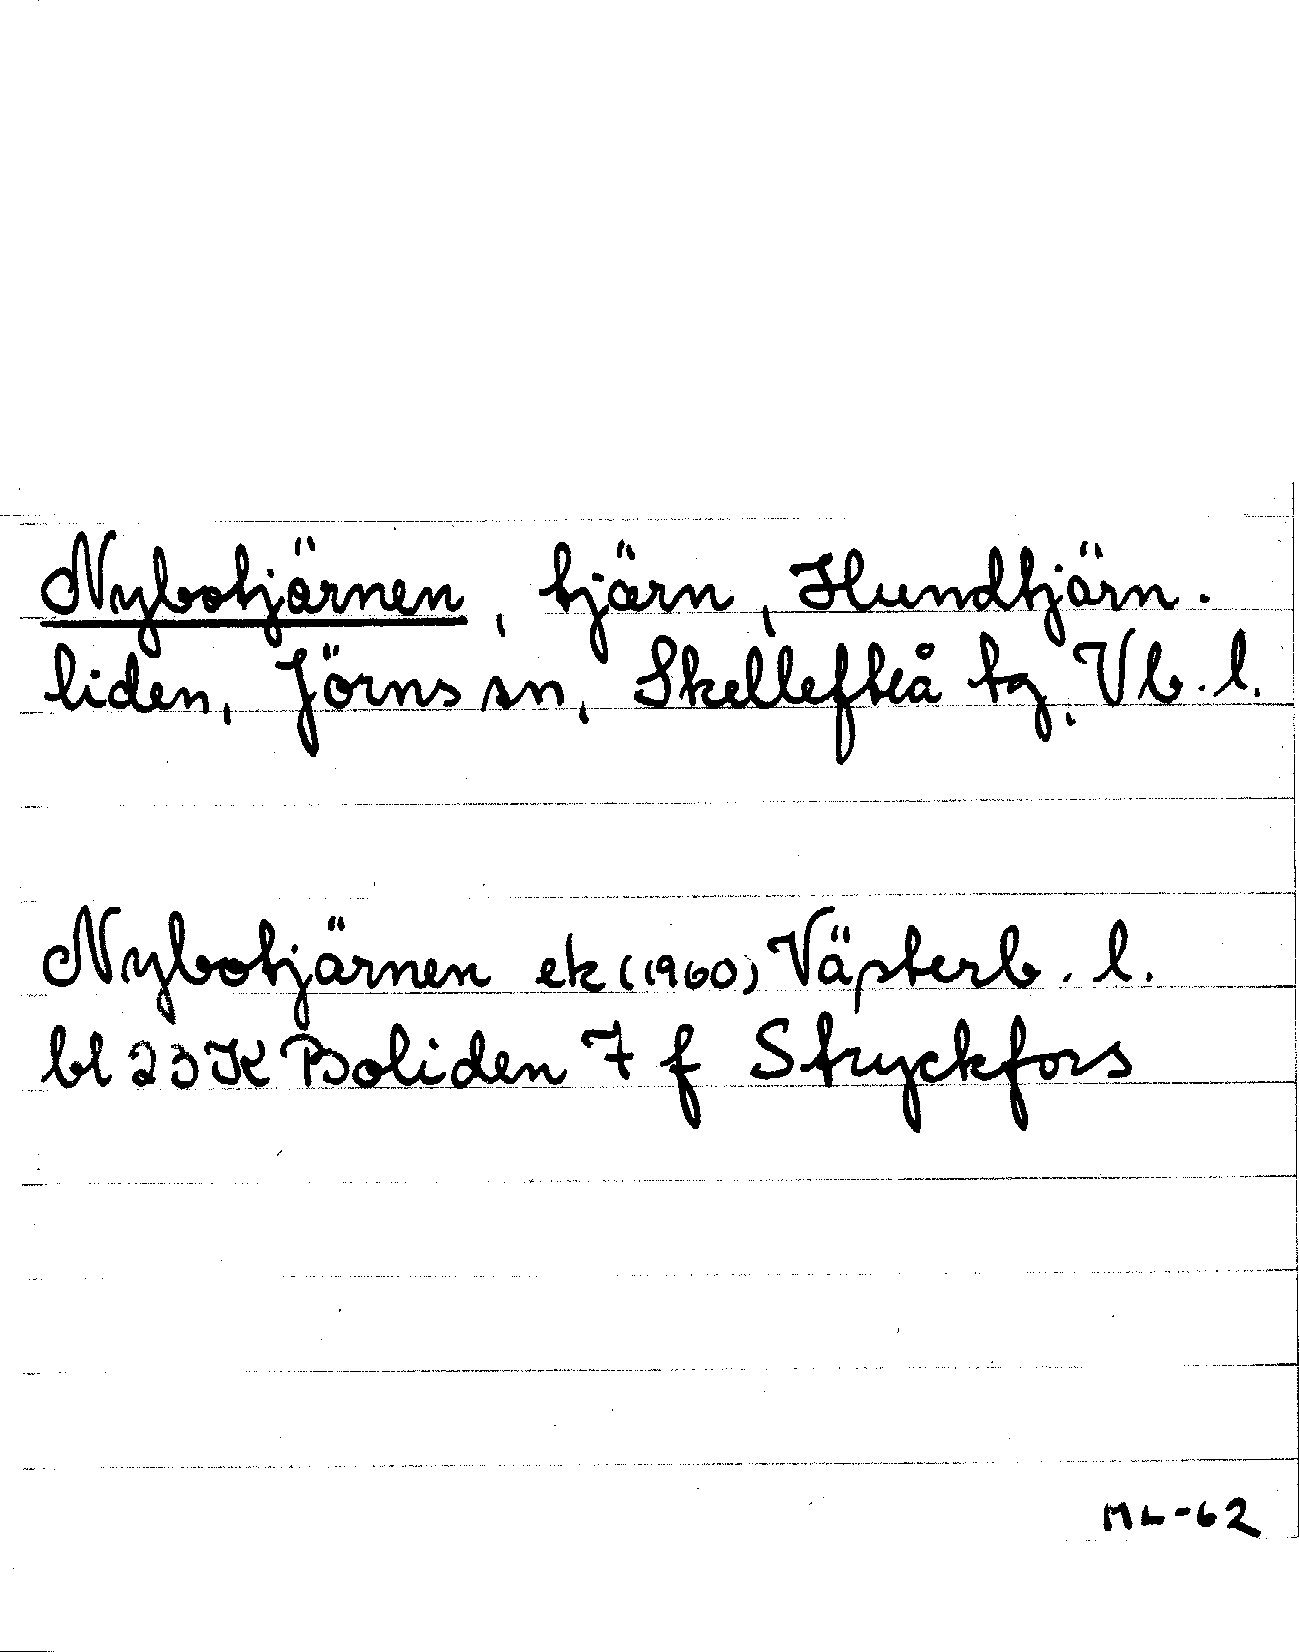 Nybotjärnen, tjärn, Hundtjärn.
liden, Jörns sn, Skellefteå tg, Vb. l.
Nybotjärnen ek (1960) Västerb. l.
bl 23 K Boliden 7 f Stryckfors
ML-62